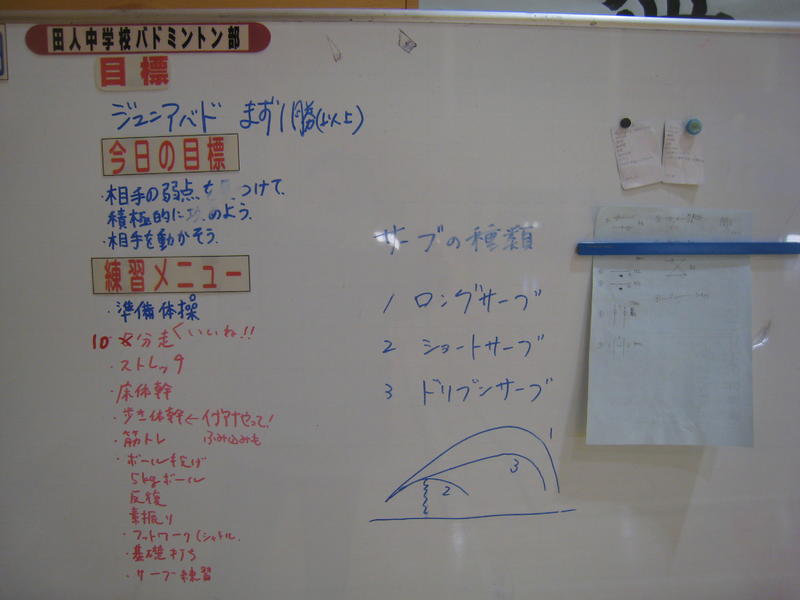 田人中学校バドミントン部
目標
ジュニアバド まず1勝(以上)
今日の目標
・相手の弱点を つけて、
積極的に攻めよう。
・相手を動かそう。
練習メニュー
・準備体操
10 分走くいいね!!
・ストレッチ
・床体幹
・歩き体幹←
・筋トレ ふみ込みも
・ボール投げ
5kgボール
反復
素振り
・フットワーク(シャトル.
・基礎打ち
・サーブ練習
サーブの種類
1 ロングサーブ
2 ショートサーブ
3 ドリブンサーブ
1
3
2